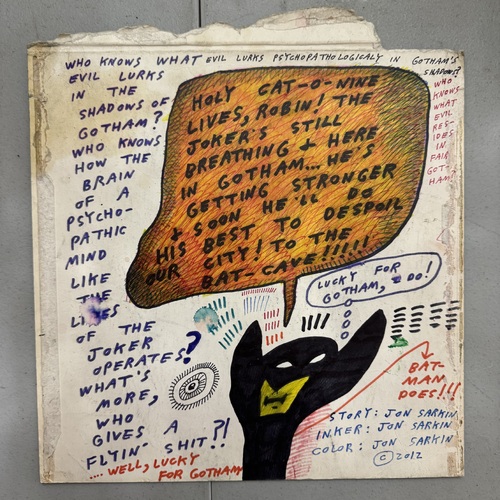 WHO KNOWS WHAT EVIL LURKS PSYCHOPATHOLOGICALY IN GOTHAM'S
SHADOWS?
EVIL LURKS
IN THE
SHADOWS OF
GOTHAM?
WHO KNOWS
HOW THE
BRAIN
OF A
PSYCHO-
PATHIC
MIND
LIKE
THE
LIKES
OF THE
JOKER
OPERATES?
WHAT'S
MORE,
WHO
GIVES A
FLYIN' SHIT?!
....WELL, LUCKY
FOR GOTHAM
HOLY CAT-O-NINE
LIVES, ROBIN! THE
JOKER'S STILL
BREATHING + HERE
IN GOTHAM... HE'S
GETTING STRONGER
+ SOON HE'LL DO
HIS BEST TO DESPOIL
OUR CITY! TO THE
BAT-CAVE!!!!!
WHO
KNOWS
WHAT
EVIL
RES-
IDES
IN
FAIR
GOTT-
HAM!
LUCKY FOR
GOTHAM, I DO!
BAT-
MAN
DOES!!!
STORY: JON SARKIN
INKER: JON SARKIN
COLOR: JON SARKIN
© 2012